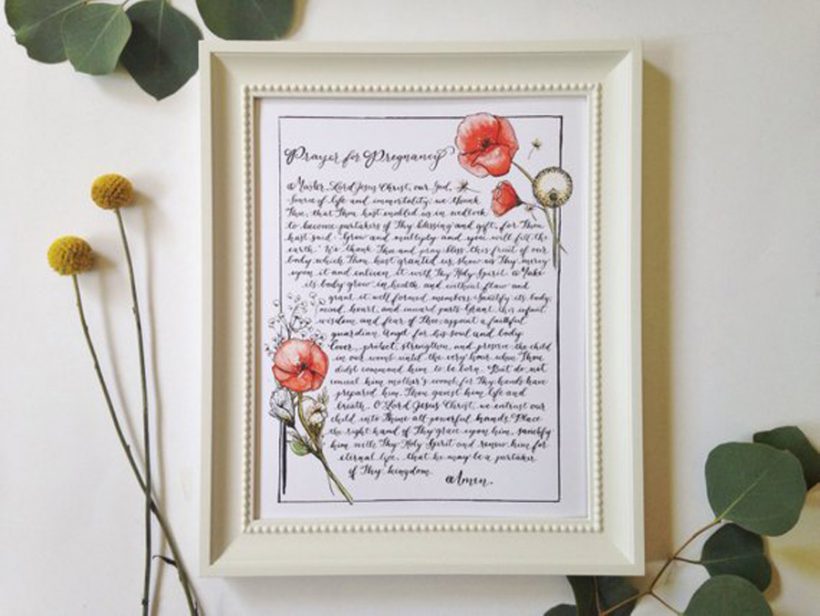 Prayer for Pregnancy
Master, Lord Jesus Christ, our God,
Source of life and immortality: we thank
Thee, that Thou hast enabled us in wedlock
to become partakers of Thy blessing and gift, for Thou
hast said: Grow and multiply and you will fill the
earth. We thank Thee and pray: bless this fruit of our
body which Thou hast granted us, show us Thy mercy
upon it and enliven it with Thy Holy Spirit. Make
its body grow in health and without flaw and
grant it well formed members. Sanctify its body,
mind, heart, and inward parts. Grant this infant
wisdom and fear of Thee; appoint a faithful
guardian Angel for his soul and body.
Cover, protect, strengthen and preserve the child
in our womb until the very hour when Thou
didst command him to be born. But do not
conceal him mother's womb, for Thy hands have
prepared him, Thou gavest him life and
breath. O Lord Jesus Christ, we entrust our
child into Thine all powerful hands. Place
the right hand of Thy grace upon him, sanctify
him with Thy Holy Spirit and renew him for
eternal life, that he may be a partaker
of Thy kingdom.
Amen.